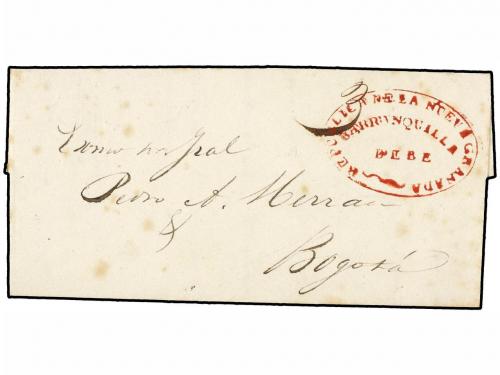 3
REPUBLICA DE LA NUEVA GRANADA
BARRANQUILLA
DEBE
Exmo Gral
Pedro A. Herran
&
Bogotá